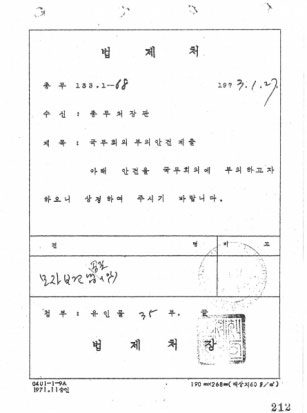 법 제 처
총무 133.1-68 1973.1.27
수신 : 총무처장관
제목 : 국무회의 부의안건 제출
아래 안건을 국무회의에 부의하고자
하오니 상정하여 주시기 바랍니다.
건 명 비 고
공포
모자보건법 (안)
첨부 : 유인물 35 부. 끝
법 제 처 장
0401-1-9A
1971.11승인
190mm×268mm
212